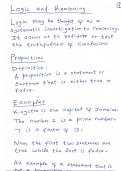 Logic and Reasoning
Logic may be thought of as a
systematic investigation to reasoning.
It allows us to validate or test
the truthfulness of conclusions.
Propositions
Definition:
A proposition is a statement or
sentence that is either true or
false.
Examples
Kingston is the capital of Jamaica.
The number 2 is a prime number.
7 is a factor of 13.
Now, the first two sentences are
true while the last is false.
An example of a statement that is